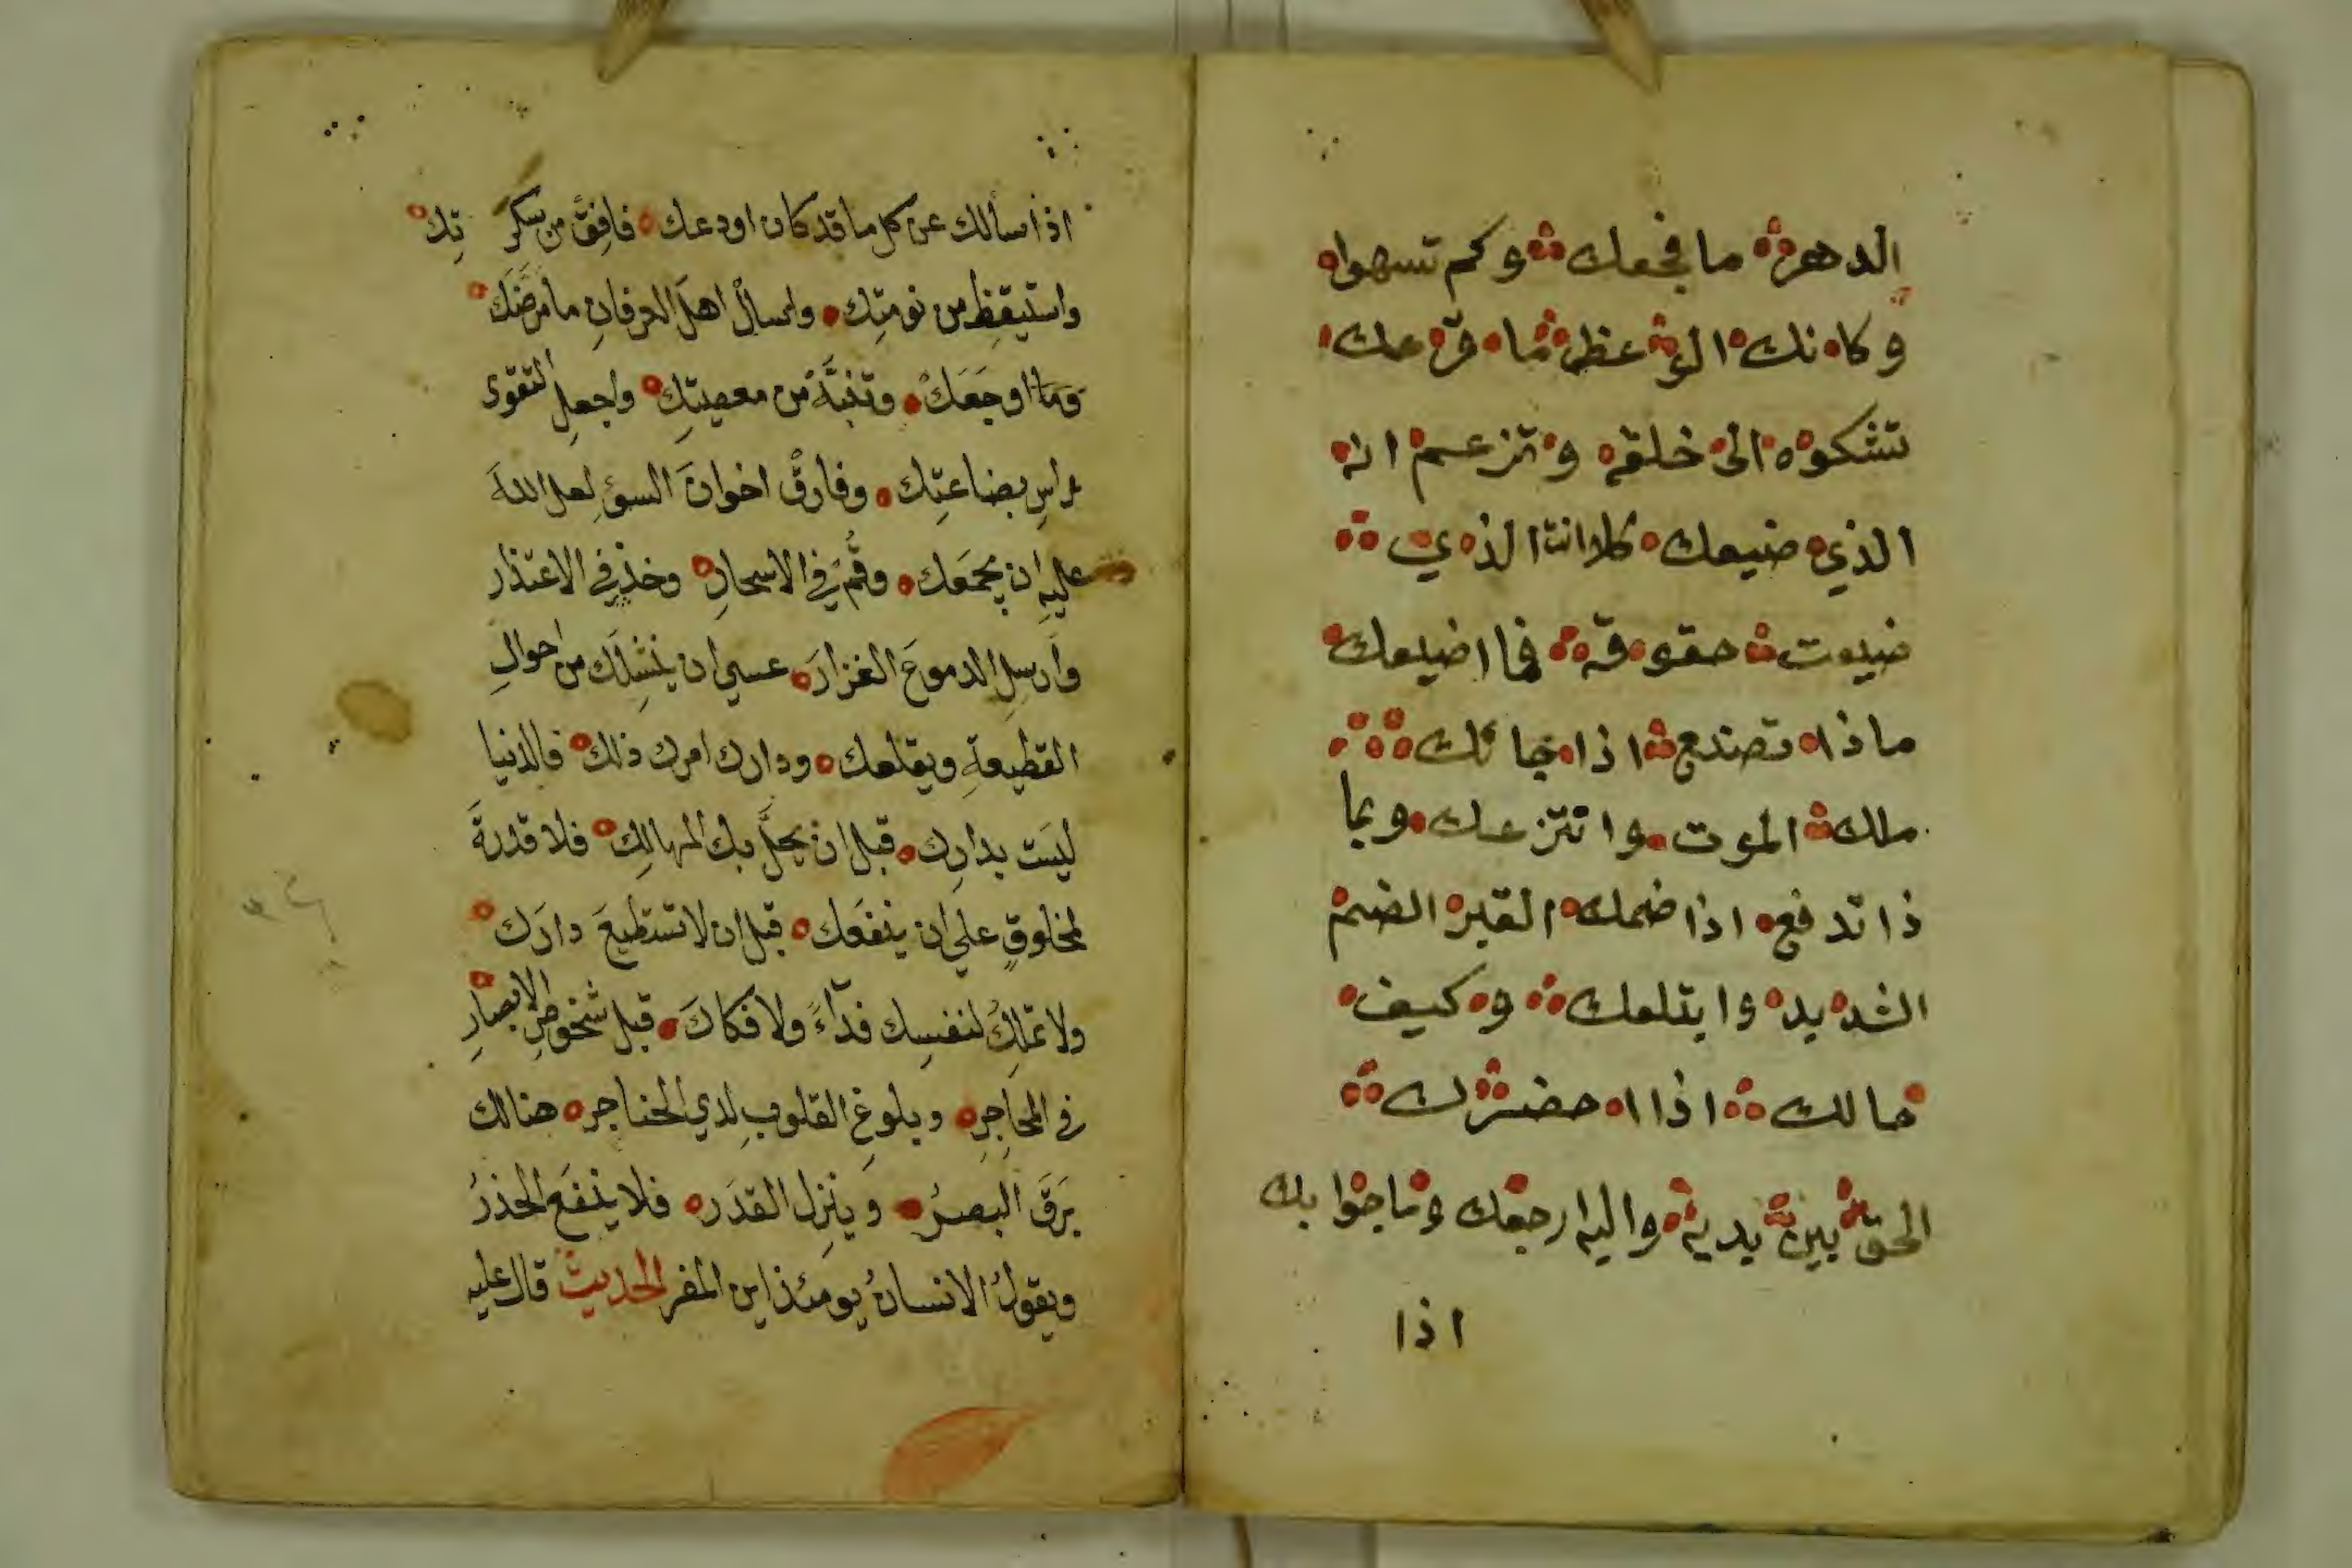 الدهر ما فجعك وكم تسهوا
وكانك الوعظ ما قرعك
تشكوه الى خلقه وتزعم انه
الذي ضيعك كلا انت الذي
ضيعت حقوقه فما اضيعك
ماذا تصنع اذا جائك
ملك الموت وانتزعك وبما
ذا تدفع اذا ضمك القبر الضم
الشديد وابتلعك وكيف
حالك اذا احضرك
الحق بين يديه واليه ارجعك وما جوابك
اذا
اذا سالك عن كل ما قد كان اودعك فافق من سكرتك
واستيقظ من نومتك واسال اهل العرفان ما مرضك
وما اوجعك وتنبه من معصيتك واجعل التقوى
راس بضاعتك وفارق اخوان السوء لعل الله
عليه ان يجمعك وقم في الاسحار وخذ في الاعتذار
وارسل الدموع الغزار عسى ان ينشلك من احوال
القطيعة ويقلعك ودارك امرك ذلك فالدنيا
ليست بدارك قبل ان يحل بك المهالك فلا قدرة
لمخلوق علي ان ينفعك قبل ان لا تستطيع دارك
ولا تملك لنفسك فداء ولا فكاك قبل شخوص الابصار
في المحاجر وبلوغ القلوب لدي الحناجر هنالك
برق البصر وينزل القدر فلا ينفع الحذر
ويقول الانسان يومئذ اين المفر الحديث قال عليه